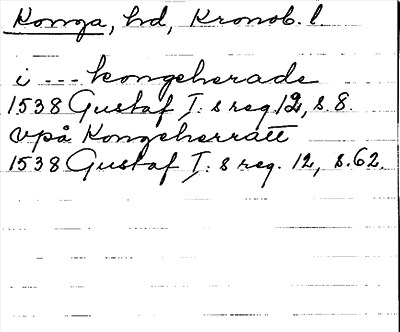 Konga, hd, Kronob. l.
i --- kongeherade
1538 Gustaf I: s reg. 12, s. 8.
vpå Kongeherratt
1538 Gustaf I: s reg. 12, s. 62.